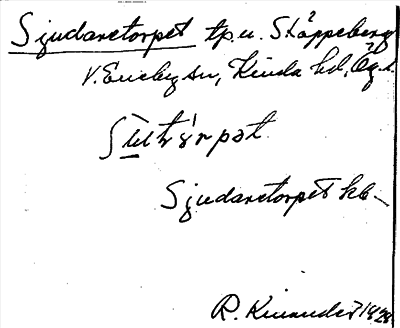 Sjudaretorpet tp.u. Skäppeberg
V. Eneby sn, Kinda hd, Ög.l.
Sjudaretorpet kb
R. Kinander 1928